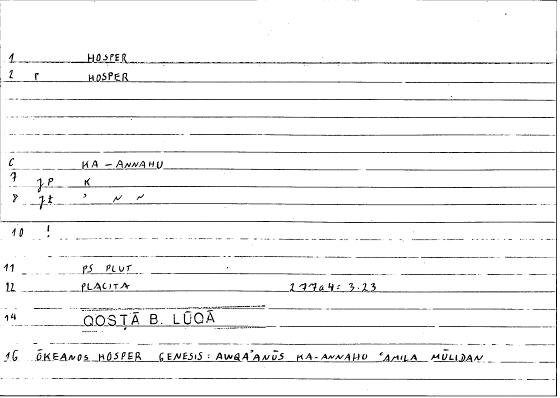 1 HOSPER
2 r HOSPER
6 KA - ANNAHU
7 JP K
8 Jt ' ~ ~
10 !
11 PS PLUT
12 PLACITA 277a4= 3.23
14 QOSṬĀ B. LŪQĀ
16 ŌKEANOS HOSPER GENESIS: AWQA'ANŪS KA-ANNAHU 'AMILA MŪLIDAN